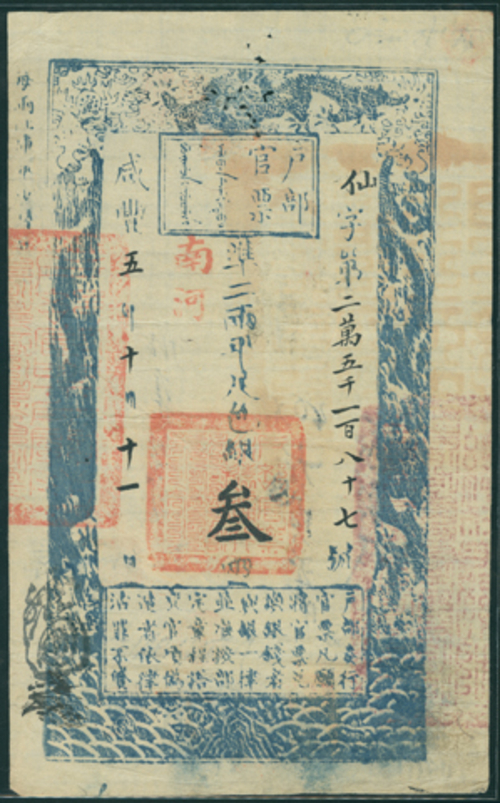 仙字第二萬五千一百八十七號
戶部
官票
準二兩平足色銀叁兩
南河
咸豐五年十月十一日
戶部奏行
官票凡願
將官票兌
換銀錢者
與銀一律
並准按部
定章程搭
交官項偽
造者依律
治罪不貸